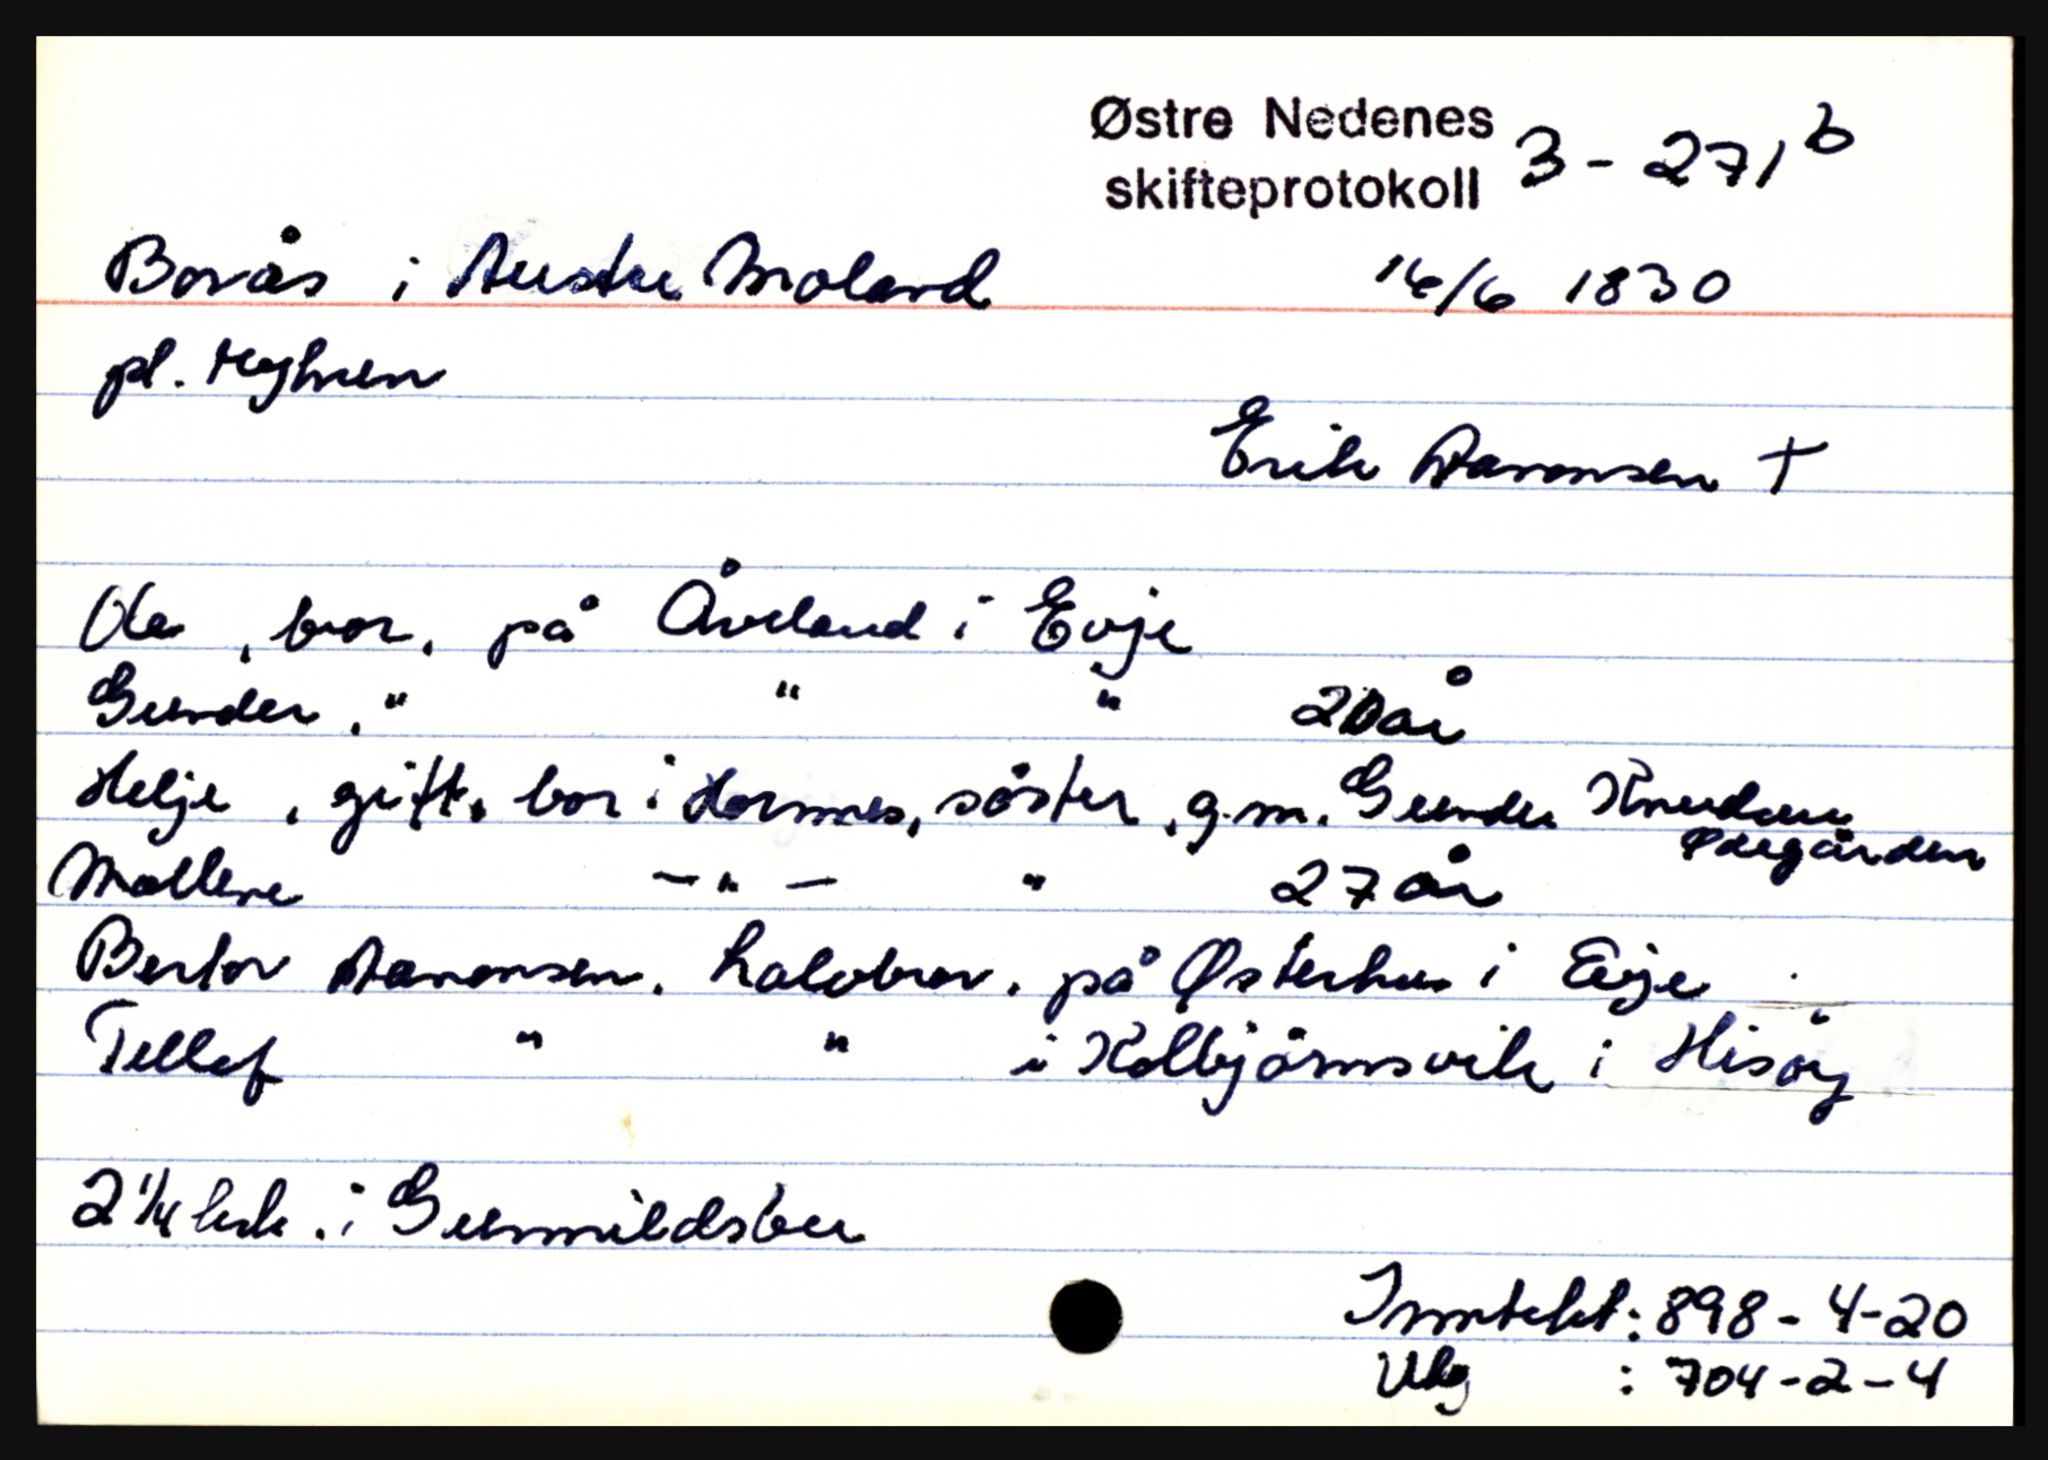 Østre Nedenes
skifteprotokoll 3 - 271 b
Borås i Austre Moland 16/6 1830
pl. Myhren
Erik Aaronsen +
Ola, bror, på Åveland i Evje
Gunder, " " " 20 år
Helje, gift, bor i Hornnes, søster, g.m. Gunder Knudsen
Ødegården
Mallene — " — " 27 år
Bertor Aaronsen, halvbror, på Østerhus i Evje
Tellef " " i Kolbjørnsvik i Hisøy
2 1/4 ksk. i Gunnildsbu
Inntekt: 898 - 4 - 20
Utg : 704 - 2 - 4